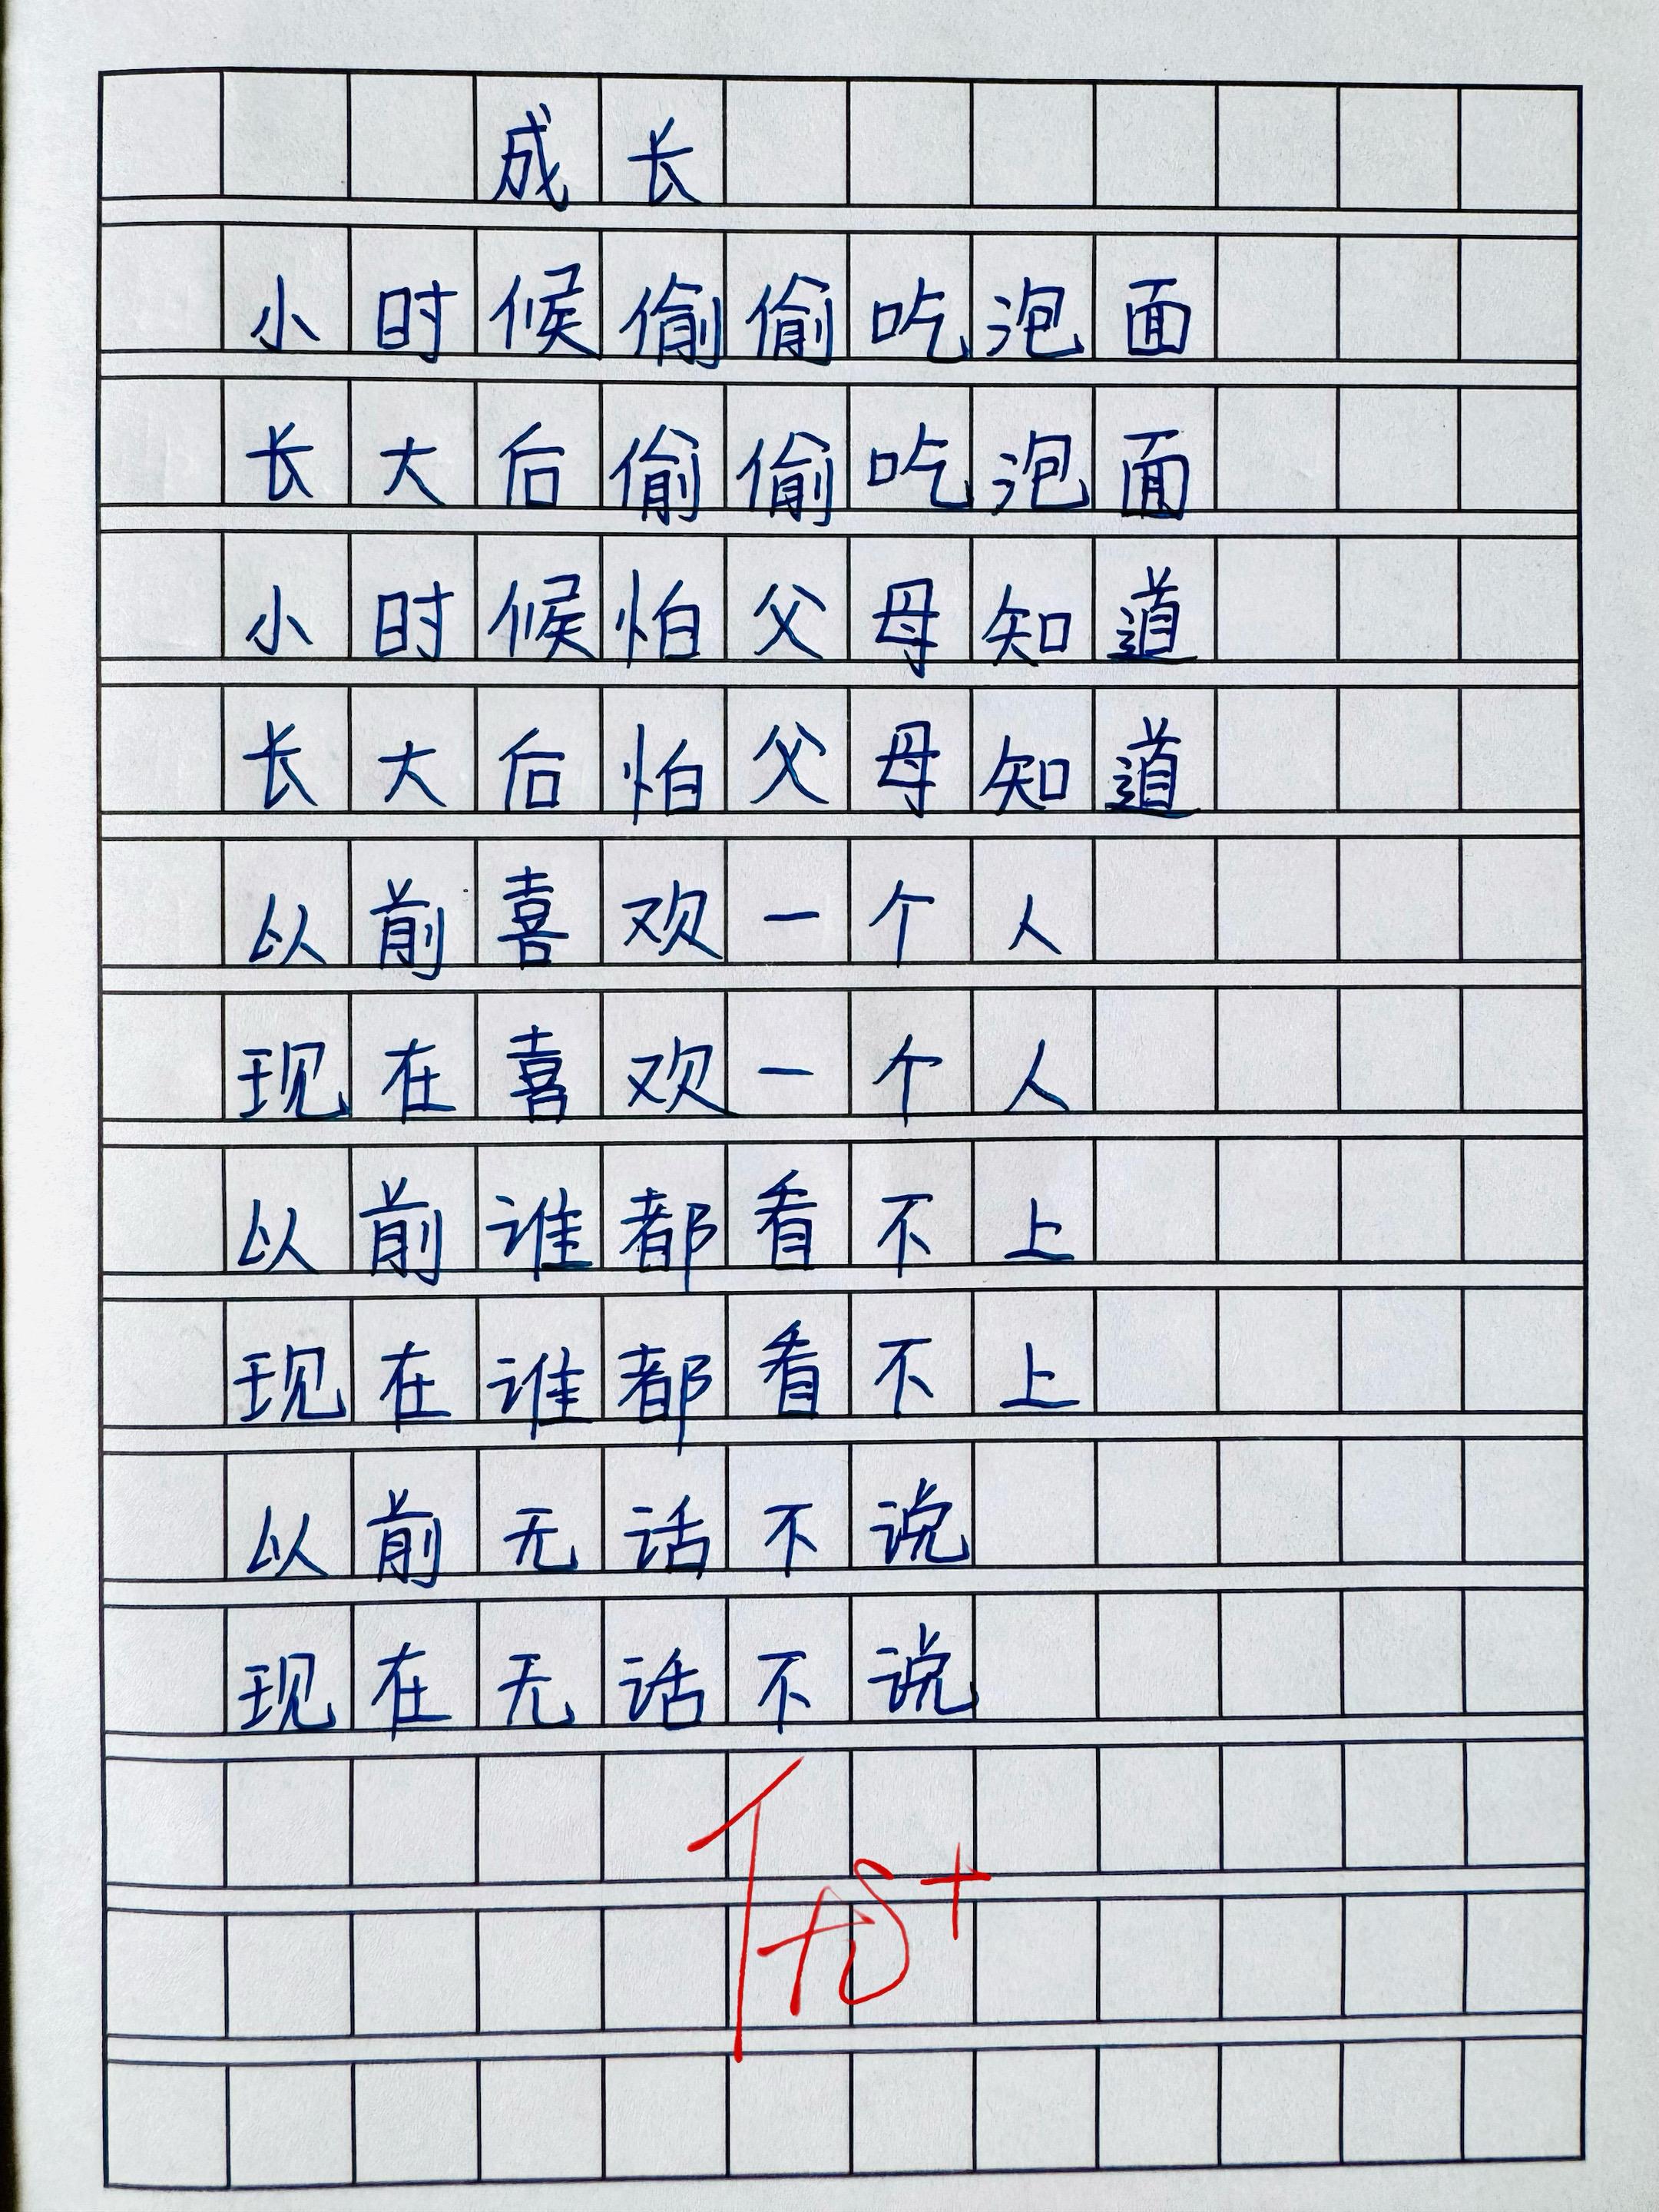 成长
小时候偷偷吃泡面
长大后偷偷吃泡面
小时候怕父母知道
长大后怕父母知道
以前喜欢一个人
现在喜欢一个人
以前谁都看不上
现在谁都看不上
以前无话不说
现在无话不说
优+